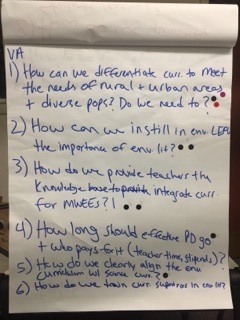 VA
1) How can we differentiate curr. to meet
the needs of rural + urban areas
+ diverse pops? Do we need to?
2) How can we instill in env.
the importance of env lit?
3) How do we provide teachers the
knowledge base to provide integrate curr.
for MWEEs?!
4) How long should effective PD go
+ who pays for it (teacher time, stipends)?
5) How do we clearly align the env
curriculum w/ science curr.?
6) How do we train curr. in env lit?